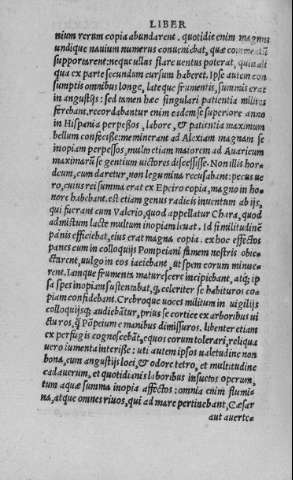 LIBER
nium rerum copia abundarent. quotidie enim magnus
undique nauium numerus conueniebat, quæ commeatũ
supportarent: neque ullus flare uentus poterat, quin ali
qua ex parte secundum cursum haberet. Ipse autem con
sumptis omnibus longe, lateque frumentis, summis erat
in angustijs: sed tamen hæc singulari patientia milites
ferebant. recordabantur enim eadem se superiore anno
in Hispania perpessos, labore, & patientia maximum
bellum confecisse: meminerant ad Alexiam magnam se
inopiam perpessos, multo etiam maiorem ad Auaricum
maximarũ se gentium uictores discessisse. Non illis hor
deum, cum daretur, non legumina recusabant: pecus ue
ro, cuius rei summa erat ex Epeiro copia, magno in ho
nore habebant. est etiam genus radicis inuentum ab ijs,
qui fuerant cum Valerio, quod appellatur Chara, quod
admistum lacte multum inopiam leuat. Id similitudinẽ
panis efficiebat, eius erat magna copia. ex hoc effectos
panes cum in colloquijs Pompeiani famem nostris obie-
ctarent, uulgo in eos iaciebant, ut spem eorum minue-
rent. Iamque frumenta maturescere incipiebant, atq; ip
sa spes inopiam sustentabat, q celeriter se habituros co-
piam confidebant. Crebroque uoces militum in uigilijs
colloquijsq; audiebãtur, prius se cortice ex arboribus ui
cturos, q̃ Põpeium e manibus dimissuros. libenter etiam
ex perfugis cognoscebãt, equos eorum tolerari, reliqua
uero iumenta interisse: uti autem ipsos ualetudine non
bona, cum angustijs loci, & odore tetro, et multitudine
cadauerum, et quotidianis laboribus insuetos operum,
tum aquæ summa inopia affectos: omnia enim flumi-
na, atque omnes riuos, qui ad mare pertinebant, Cæsar
aut auerte